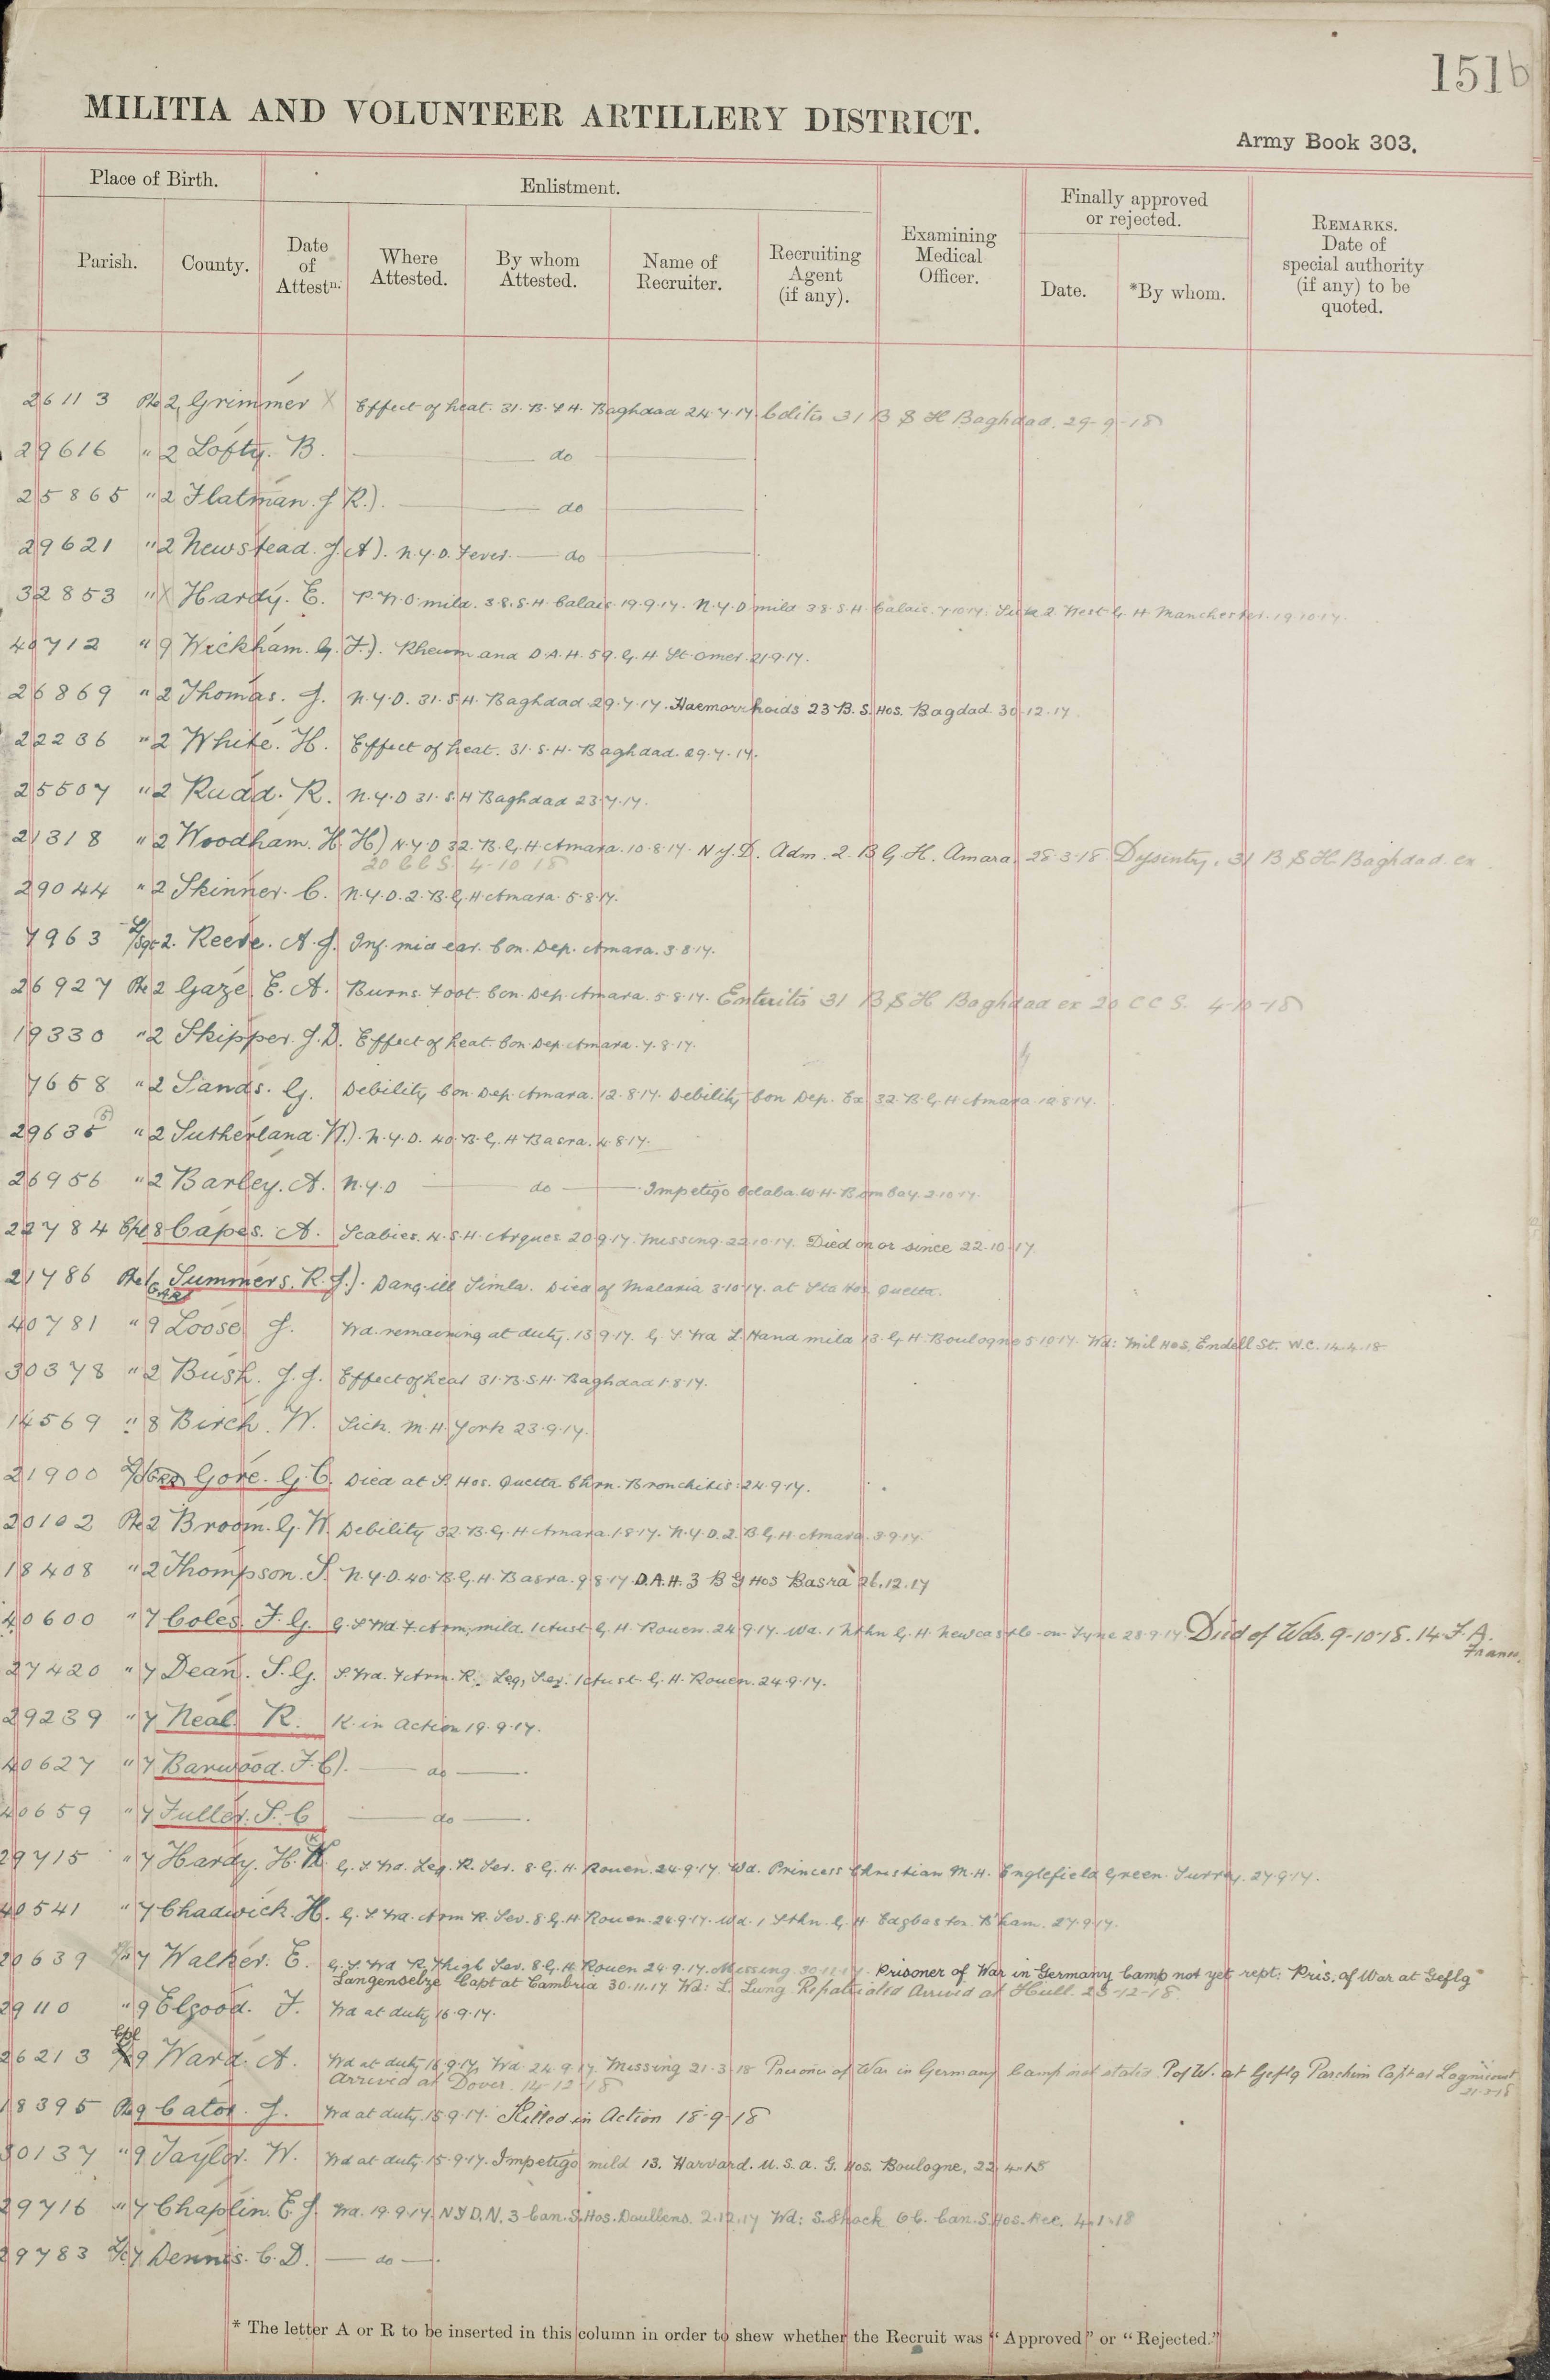 151b
MILITIA AND VOLUNTEER ARTILLERY DISTRICT.
Army Book 303.
Place of Birth.
Enlistment.
Finally approved or rejected.
Parish.
County.
Date of Attestn.
Where Attested.
By whom Attested.
Name of Recruiter.
Recruiting Agent (if any).
Examining Medical Officer.
Date.
*By whom.
REMARKS. Date of special authority (if any) to be quoted.
26113 Pte 2 Grimmer X Effect of heat. 31. B. S H. Baghdad 24.7.17. Colitis 31 B S H Baghdad. 29-9-18
29616 " 2 Lofty. B. — do —
25865 " 2 Flatman. J R.). — do —
29621 " 2 Newstead. J. A). N.Y.D. Fever. — do —
32853 " X Hardy. E. P.N.O. mild. 38. S. H. Calais. 19.9.17. N.Y.D mild 38. S. H. Calais. 7.10.17. Sick 2. West G. H. Manchester. 19.10.17.
40712 " 9 Wickham. G. F.). Rheum and D.A.H. 59. G. H St. Omer. 21.9.17.
26869 " 2 Thomas. J. N.Y.D. 31. S. H. Baghdad 29.7.17. Haemorrhoids 23 B. S. Hos. Bagdad. 30.12.17.
22236 " 2 White. H. Effect of heat. 31. S. H. Baghdad. 29.7.17.
25507 " 2 Rudd. R. N.Y.D 31. S. H Baghdad 23.7.17.
21318 " 2 Woodham. H. H) N.Y.D 32. B. G. H. Amara. 10.8.17. N Y. D. Adm. 2. B G. H. Amara. 28.3.18 Dysintry. 31 B S H Baghdad ex
20 C C S. 4-10-18
29044 " 2 Skinner. C. N.Y.D. 2. B. G. H. Amara. 5.8.17.
7963 L/Sgt 2. Reeve. A. J. Inf. mid ear. Con. Dep. Amara. 3.8.17.
26927 Pte 2 Gaze E. A. Burns. Foot. Con. Dep. Amara. 5.8.17. Enteritis 31 B S H Baghdad ex 20 C C S. 4-10-18
19330 " 2 Skipper. J. D. Effect of heat. Con. Dep. Amara. 7.8.17.
7658 " 2 Sands. G. Debility Con. Dep. Amara. 12.8.17. Debility Con Dep. Ex 32. B. G. H Amara 12.8.17.
29635 (5) " 2 Sutherland. W.). N.Y.D. 40. B. G. H Basra. 4.8.17.
26956 " 2 Barley. A. N.Y.D — do — Impetigo Colaba. W. H. Bombay. 2.10.17.
22784 Cpl 8 Capes. A. Scabies. 4. S. H. Arques 20.9.17. Missing. 22.10.17. Died on or since 22.10.17
21786 Pte Summers. R. J.). Dang. ill Simla. Died of Malaria 3.10.17. at Sta Hos. Quetta.
40781 " 9 Loose J. Wd. remaining at duty. 13.9.17. G S Wd L. Hand mild 13. G H. Boulogne 5.10.17. Wd: Mil Hos. Endell St. W.C. 14.4.18
30378 " 2 Bush. J. J. Effect of heat 31. B. S. H. Baghdad 1.8.17.
14569 " 8 Birch. W. Sick. M. H York 23.9.17.
21900 Gore. G. C. Died at S. Hos. Quetta Chrn. Bronchitis. 24.9.17.
20102 Pte 2 Broom. G. W. Debility 32. B. G. H Amara. 1.8.17. N.Y.D. 2. B G. H. Amara. 3.9.17.
18408 " 2 Thompson. S. N.Y.D. 40. B. G. H. Basra. 9.8.17. D.A.H. 3 B G Hos Basra 26.12.17
40600 " 7 Coles. F. G. G. S Wd. F. Arm. mild. 1 Aust. G. H. Rouen. 24.9.17. Wd. 1 Nthn G. H. Newcastle-on-Tyne 28.9.17. Died of Wds. 9-10-18. 14. F. A. France.
27420 " 7 Dean. S. G. S. Wd. F. Arm. R. Leg, Sev. 1 Aust. G. H. Rouen. 24.9.17.
29239 " 7 Neal. R. K. in Action 19.9.17.
40627 " 7 Barwood. F. C). — do —.
40659 " 7 Fuller. S. C — do —.
29715 " 7 Hardy. H. (K) G. S Wd. Leg. R. Sev. 8. G. H. Rouen. 24.9.17. Wd. Princess Christian M. H. Englefield Green. Surrey. 27.9.17.
40541 " 7 Chadwick. H. G. S Wd. Arm R. Sev. 8 G. H. Rouen. 24.9.17. Wd. 1 Sthn. G. H. Edgbaston. B'ham. 27.9.17.
20639 " 7 Walker. E. G. S. Wd R. Thigh Sev. 8 G. H. Rouen 24.9.17. Missing 30.11.17. Prisoner of War in Germany Camp not yet rept. Pris. of War at Geflg
Langenselze Capt at Cambria 30.11.17 Wd: L. Lung Repatriated Arrived at Hull. 23-12-18.
29110 " 9 Elgood. F. Wd at duty 16.9.17.
26213 Cpl 9 Ward. A. Wd at duty 16.9.17. Wd. 24.9.17. Missing 21.3.18 Prisoner of War in Germany Camp not stated. P of W. at Geflg Parchim Capt at Lagnicourt 21.3.18
Arrived at Dover. 14-12-18
18395 Pte 9 Cator. J. Wd at duty 15.9.17. Killed in Action 18-9-18
30137 " 9 Taylor. W. Wd at duty 15.9.17. Impetigo mild 13. Harvard. U.S.A. G. Hos. Boulogne, 22.4.18
29716 " 7 Chaplin. E. J. Wd. 19.9.17. N Y D. N. 3 Can. S. Hos. Doullens. 2.12.17 Wd: S. Shock 6 C. Can. S. Hos. Rec. 4.1.18
29783 L/c 7 Dennis. C. D. — do —.
* The letter A or R to be inserted in this column in order to shew whether the Recruit was "Approved" or "Rejected."